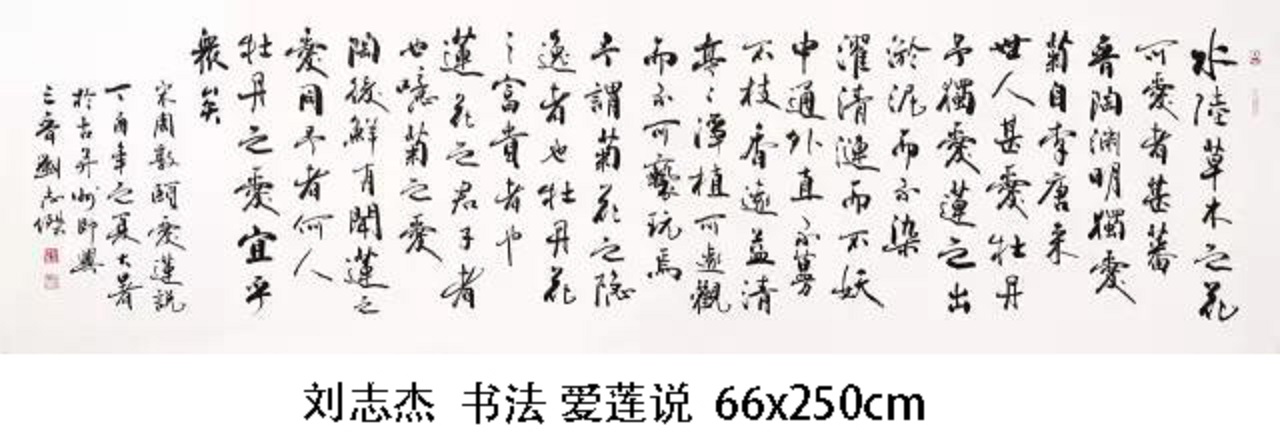 水陸草木之花
可愛者甚蕃
晉陶淵明獨愛
菊自李唐來
世人甚愛牡丹
予獨愛蓮之出
淤泥而不染
濯清漣而不妖
中通外直不蔓
不枝香遠益清
亭〻潭植可遠觀
而不可褻玩焉
予謂菊花之隱
逸者也牡丹花
之富貴者也
蓮花之君子者
也噫菊之愛
陶後鮮有聞蓮之
愛同予者何人
牡丹之愛宜乎
衆矣
宋周敦頤愛蓮説
丁酉年之夏大暑
於古并州即興
三晉劉志傑
刘志杰 书法 爱莲说 66x250cm